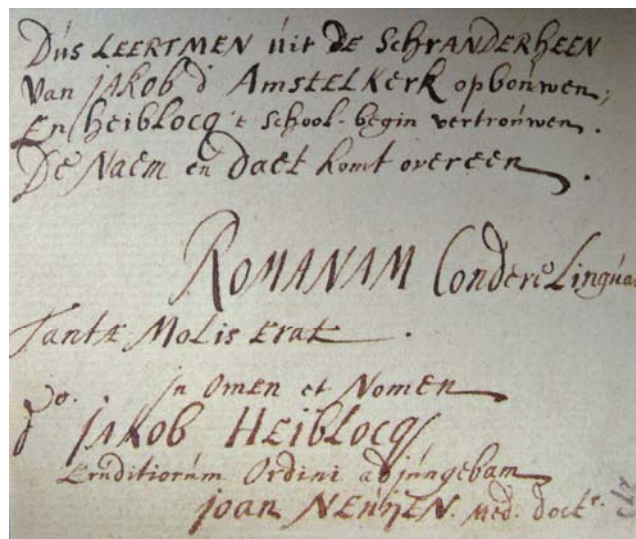 Dus LEERTMEN uit DE SchRANDERHEEN
Van JAKOB d' AmstELKERK opbouwen;
En heiblocq 't School-begin vertrouwen.
De Naem en daet komt overeen.
ROMANAM Condere Lingua
Tantæ Molis Erat.
In Omen et Nomen
Do.
JAKOB HEiBLOCQ
Eruditiorum Ordini adjungebam
Joan NEUYEN. Med: doctr.